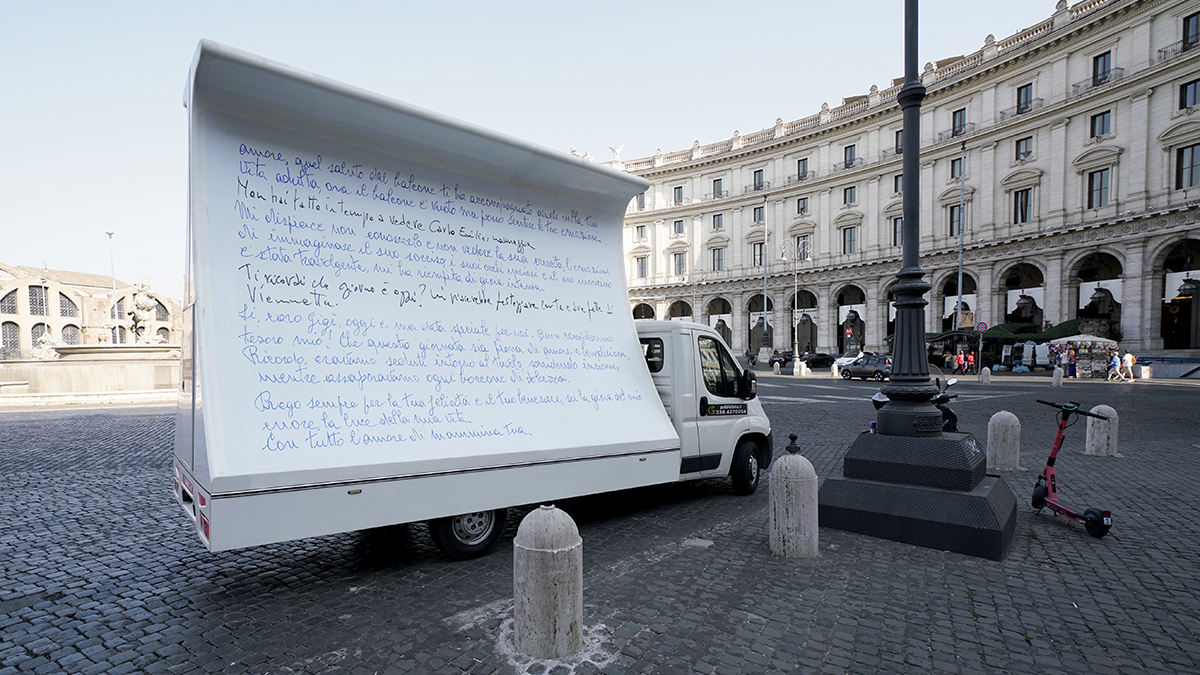 amore, quel saluto dal balcone ti ha accompagnato anche nella tua
vita adulta, ora il balcone è vuoto ma posso sentire le tue emozioni.
Non hai fatto in tempo a vedere Carlo Emilio, mannaggia
Mi dispiace non conoscerlo e non vedere la sua crescita. L'emozione
di immaginare il suo sorriso, i suoi occhi vispi e il suo
è stata travolgente, mi ha riempita di gioia intensa.
Ti ricordi che giorno è oggi? Mi piacerebbe festeggiare con te e due fette di
Viennetta.
Sì, caro Gigi, oggi è una data speciale per noi. Buon compleanno
tesoro mio! Che questa giornata sia piena di amore e benedizioni
Piccolo, eravamo seduti intorno al tavolo, ridendo insieme,
mentre assaporavamo ogni boccone di dolcezza.
Prego sempre per la tua felicità e il tuo benessere, sei la gioia del mio
cuore, la luce della mia vita.
Con tutto l'amore di mammina tua.
338.4270054